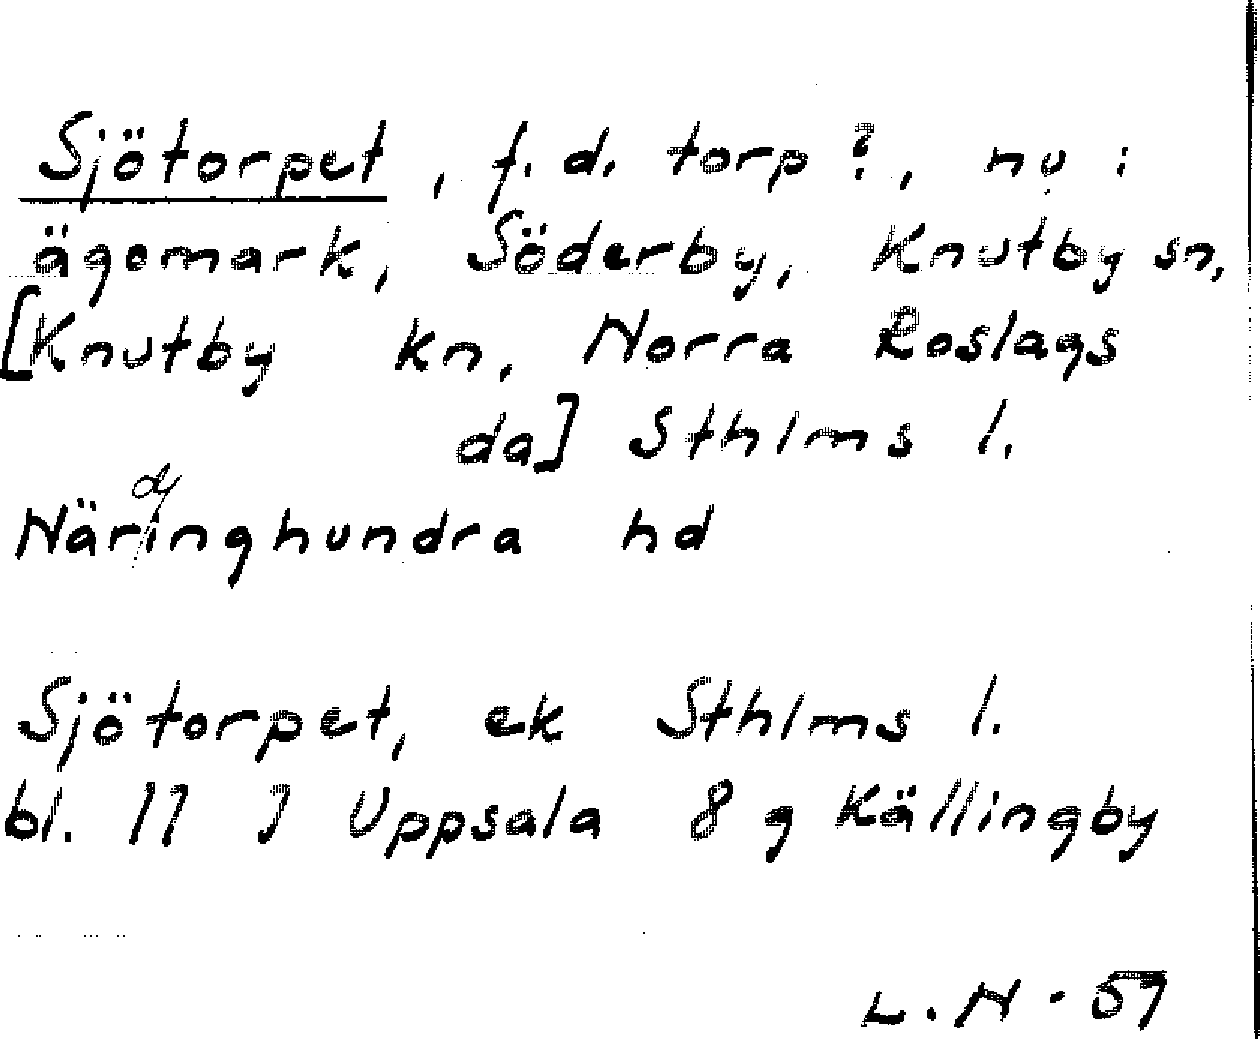 Sjötorpet, f.d. torp ?, nu i
ägomark, Söderby, Knutby sn,
[Knutby kn, Norra Roslags
da] Sthlms l.
Närdinghundra hd
Sjötorpet, ek Sthlms l.
bl. 11 I Uppsala 8 g Källingby
L.N. 57